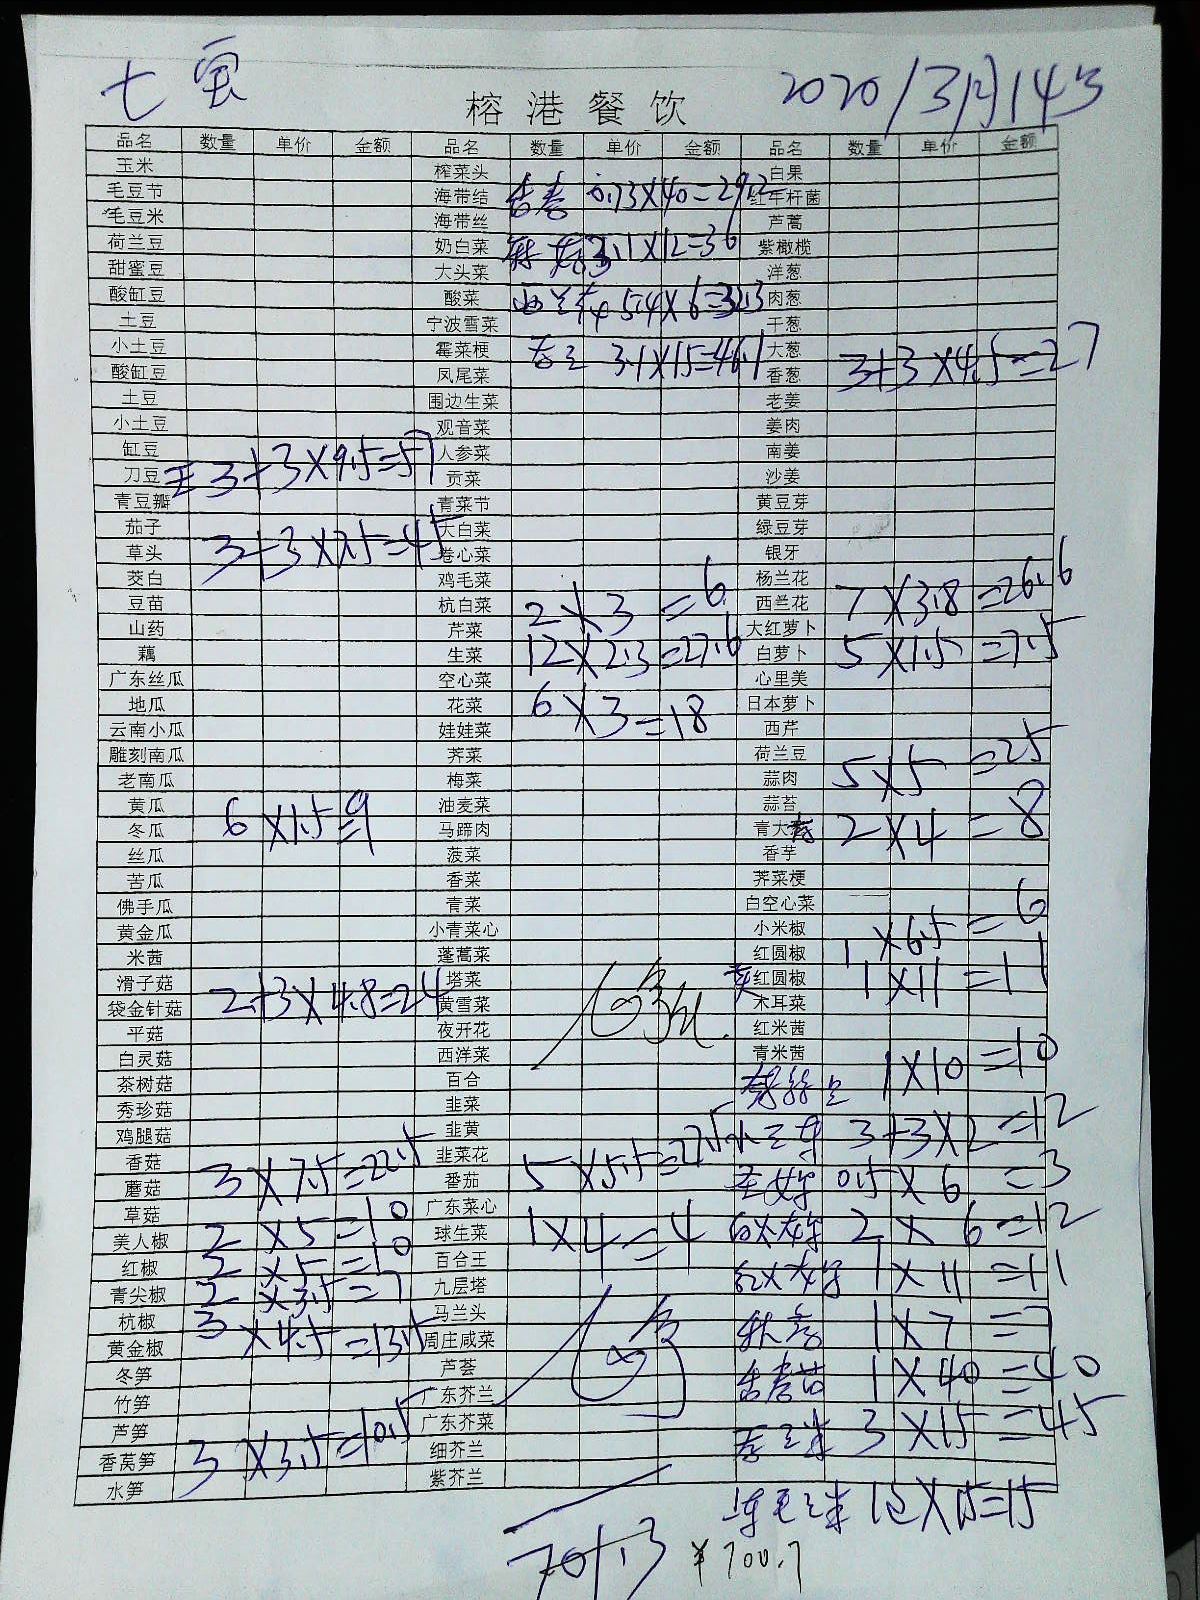 七宝
2020/3月14号
榕港餐饮
品名 数量 单价 金额 品名 数量 单价 金额 品名 数量 单价 金额
玉米 榨菜头 白果
毛豆节 海带结 香春 0.73×40=29.2 红牛杆菌
毛豆米 海带丝 芦蒿
荷兰豆 奶白菜 3.1×12=36 紫橄榄
甜蜜豆 大头菜 洋葱
酸缸豆 酸菜 西兰苔 5.4×6=32.3 肉葱
土豆 宁波雪菜 干葱
小土豆 霉菜梗 3.1×15=46.1 大葱
酸缸豆 凤尾菜 香葱 3+3×4.5=27
土豆 围边生菜 老姜
小土豆 观音菜 姜肉
缸豆 人参菜 南姜
刀豆 3+3×9.5=57 贡菜 沙姜
青豆瓣 青菜节 黄豆芽
茄子 大白菜 绿豆芽
草头 3+3×7.5=45 卷心菜 银牙
茭白 鸡毛菜 杨兰花
豆苗 杭白菜 2×3=6 西兰花 7×3.8=26.6
山药 芹菜 大红萝卜
藕 生菜 12×2.3=27.6 白萝卜 5×1.5=7.5
广东丝瓜 空心菜 心里美
地瓜 花菜 6×3=18 日本萝卜
云南小瓜 娃娃菜 西芹
雕刻南瓜 荠菜 荷兰豆
老南瓜 梅菜 蒜肉 5×5=25
黄瓜 油麦菜 蒜苔
冬瓜 6×1.5=9 马蹄肉 青大 2×4=8
丝瓜 菠菜 香芋
苦瓜 香菜 荠菜梗
佛手瓜 青菜 白空心菜
黄金瓜 小青菜心 小米椒
米茜 蓬蒿菜 红圆椒 1×6.5=6
滑子菇 塔菜 红圆椒 1×11=11
袋金针菇 2+3×4.8=24 黄雪菜 木耳菜
平菇 夜开花 红米茜
白灵菇 西洋菜 青米茜
茶树菇 百合 1×10=10
秀珍菇 韭菜
鸡腿菇 韭黄 3+3×2=12
香菇 韭菜花
蘑菇 3×7.5=22.5 番茄 5×5.5=27.5 圣女果 0.5×6=3
草菇 广东菜心
美人椒 2×5=10 球生菜 1×4=4 白火龙果 2×6=12
红椒 2×5=10 百合王
青尖椒 2×3.5=7 九层塔 红火龙果 1×11=11
杭椒 马兰头
黄金椒 3×4.5=13.5 周庄咸菜 秋葵 1×7=7
冬笋 芦荟
竹笋 广东芥兰 香春苗 1×40=40
芦笋 广东芥菜
香莴笋 3×3.5=10.5 细芥兰 3×15=45
水笋 紫芥兰
1包×15=15
701.3 ¥700.7